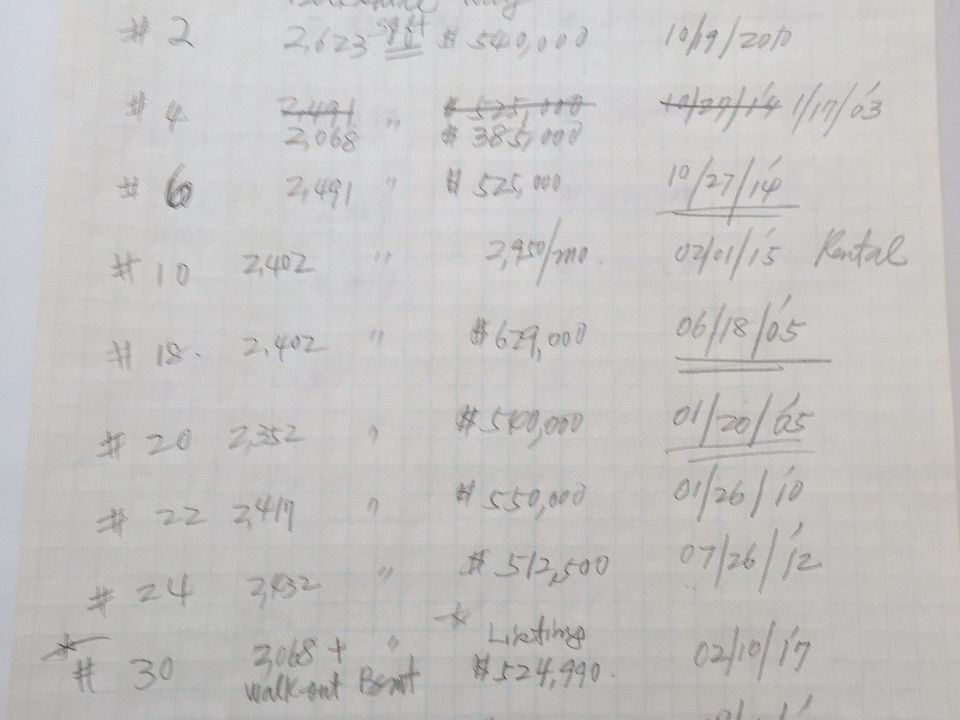 # 2 2,623 sqft $ 540,000 10/19/2010
# 4 2,491 " $ 525,000 10/27/'14 1/17/'03
2,068 $ 385,000
# 6 2,491 " $ 525,000 10/27/'14
# 10 2,402 " 2,950/mo. 02/01/'15 Rental
# 18. 2,402 " $ 629,000 06/18/'05
# 20 2,352 " $ 540,000 01/20/'05
# 22 2,417 " $ 550,000 01/26/'10
# 24 2,432 " $ 512,500 07/26/'12
Listing
# 30 2,068 + " $ 524,990. 02/10/'17
walk-out Bsmt